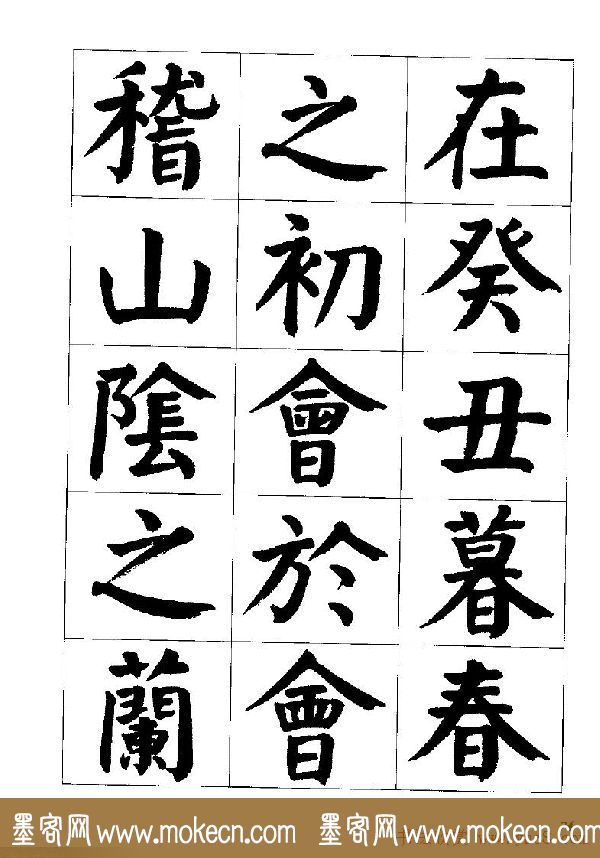 在癸丑暮春
之初會於會
稽山陰之蘭
墨客网 www.mokecn.com 墨客网 www.mokecn.com